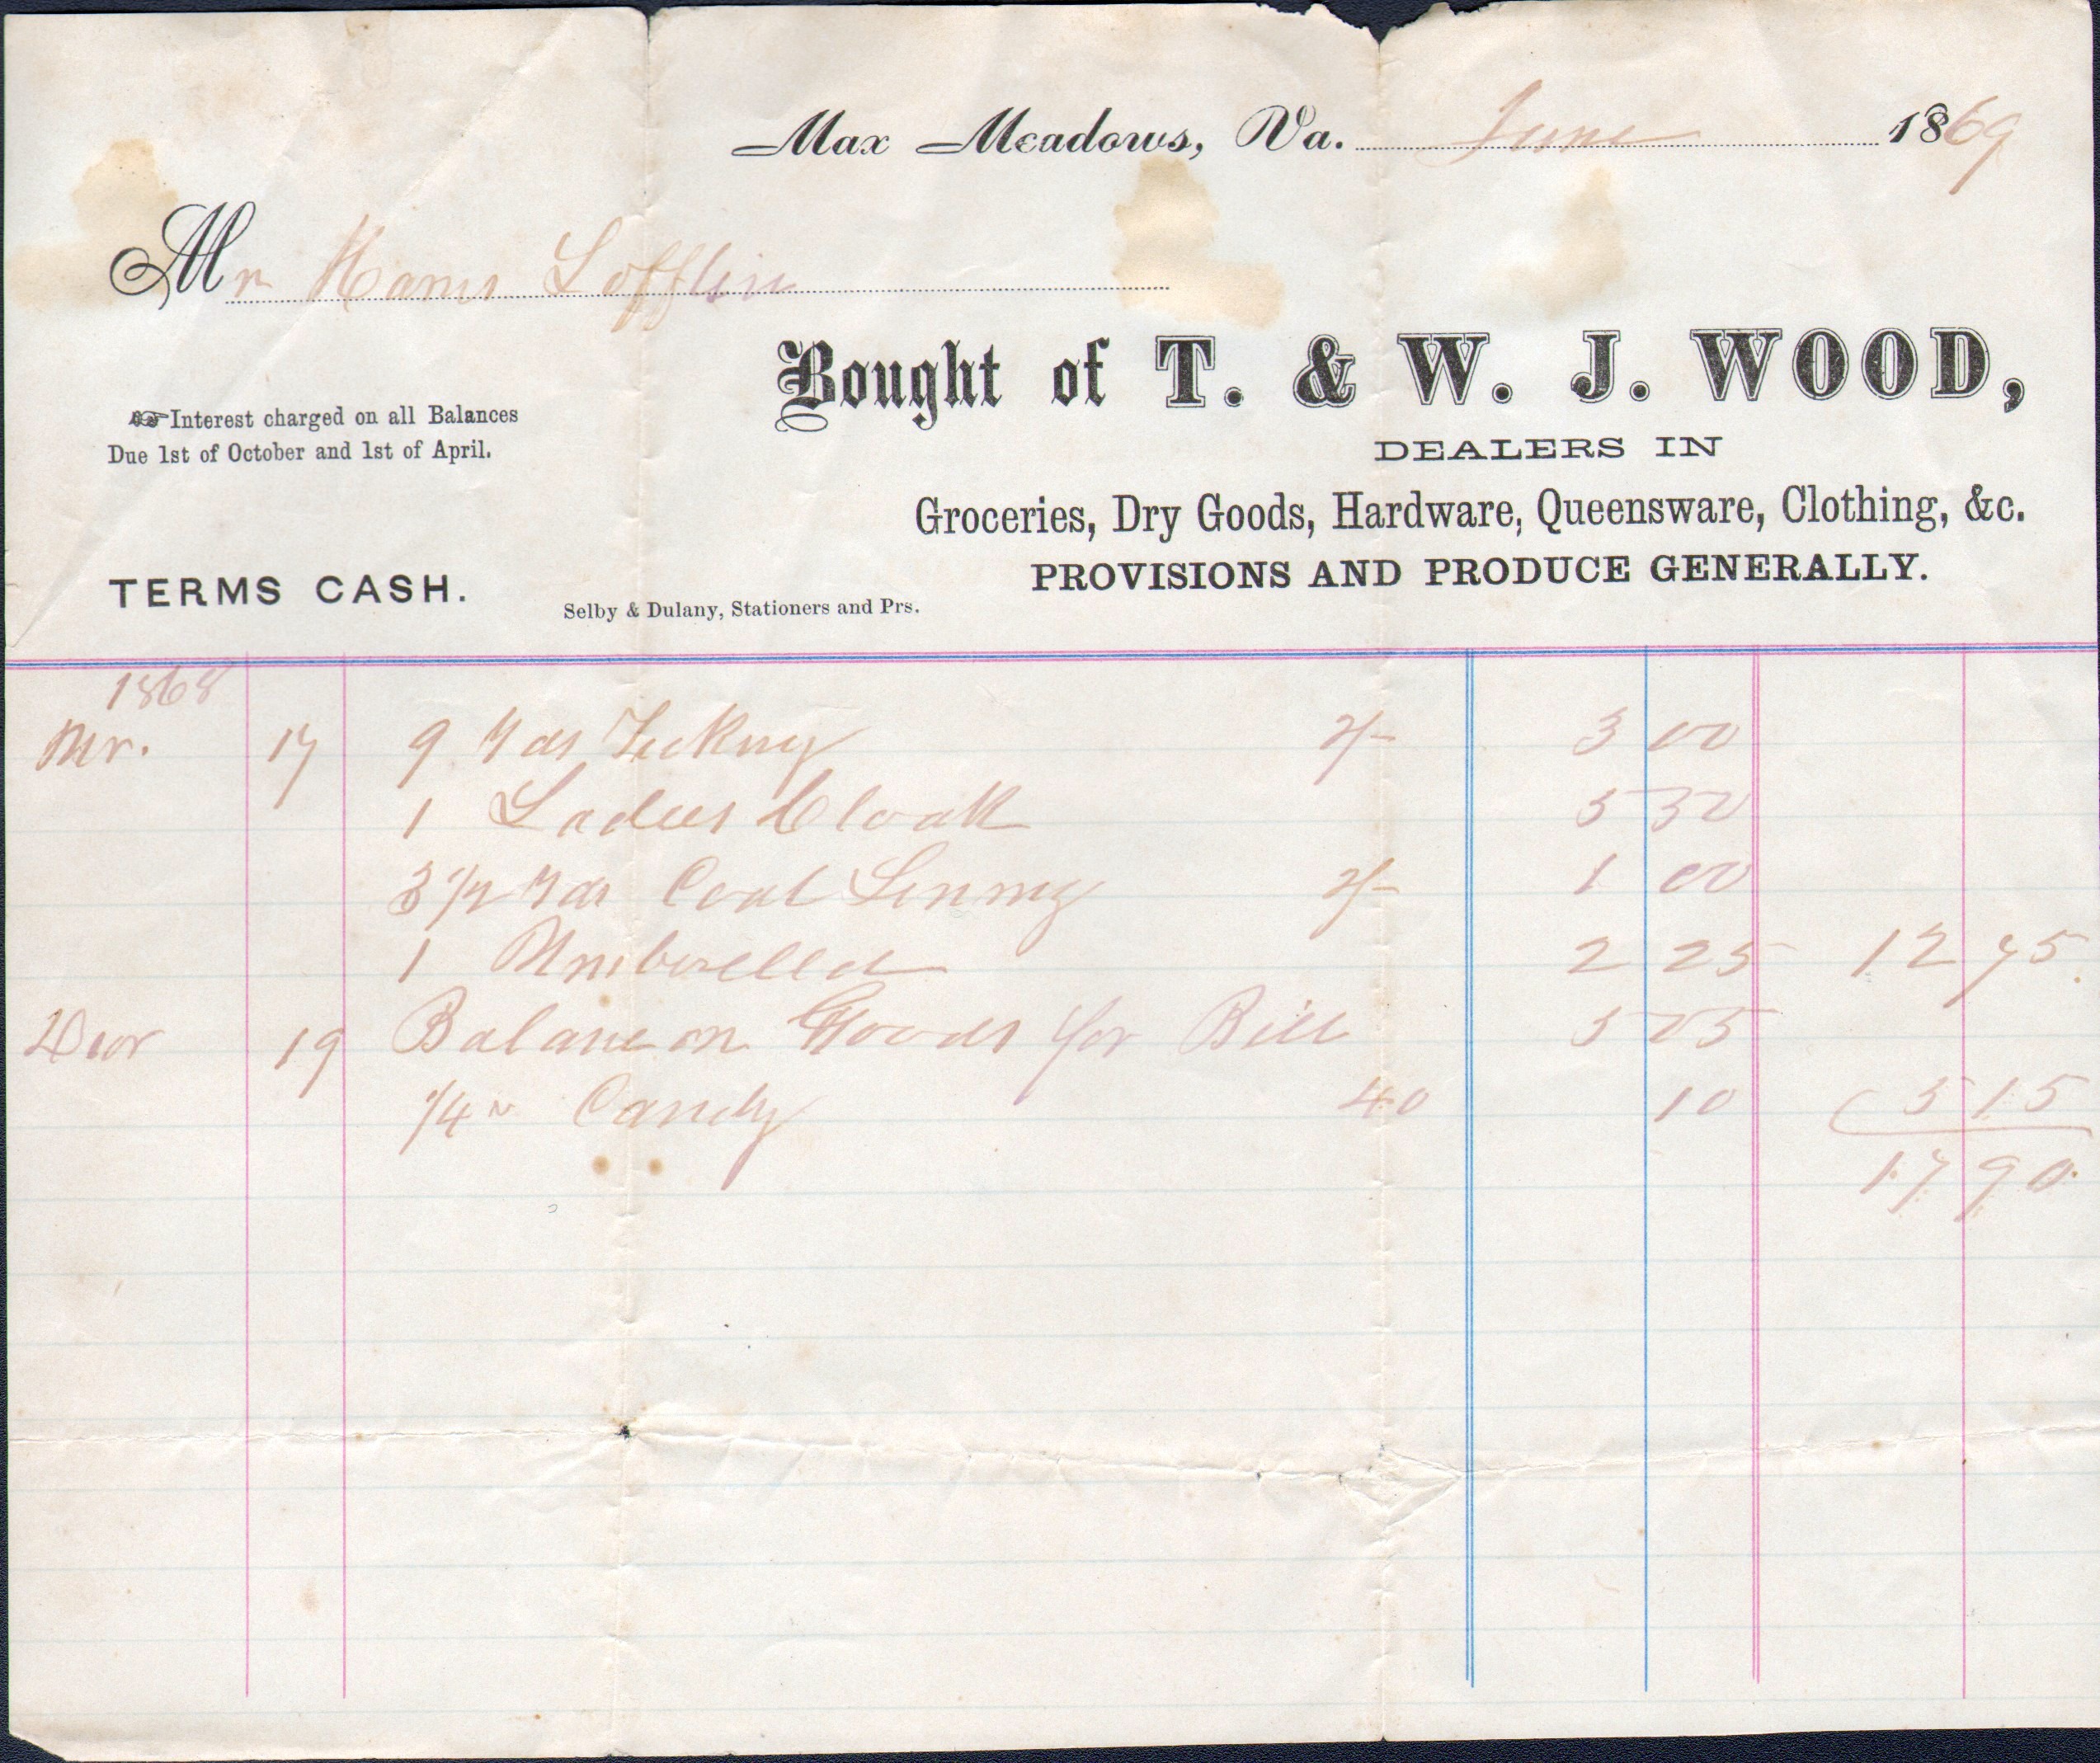 Max Meadows, Va. June 1869
Mr Lofflin
Bought of T. & W. J. WOOD,
☞Interest charged on all Balances
Due 1st of October and 1st of April.
DEALERS IN
Groceries, Dry Goods, Hardware, Queensware, Clothing, &c.
PROVISIONS AND PRODUCE GENERALLY.
TERMS CASH.
Selby & Dulany, Stationers and Prs.
1868
17 9 Yds Ticking 2/- 3 00
1 Ladies Cloak 5 50
3 1/2 Yds Coat Lining 2/- 1 00
1 Umbrella 2 25 12 75
19 Balance on Goods for Bill 5 05
1/4 " Candy 40 10 5 15
17 90